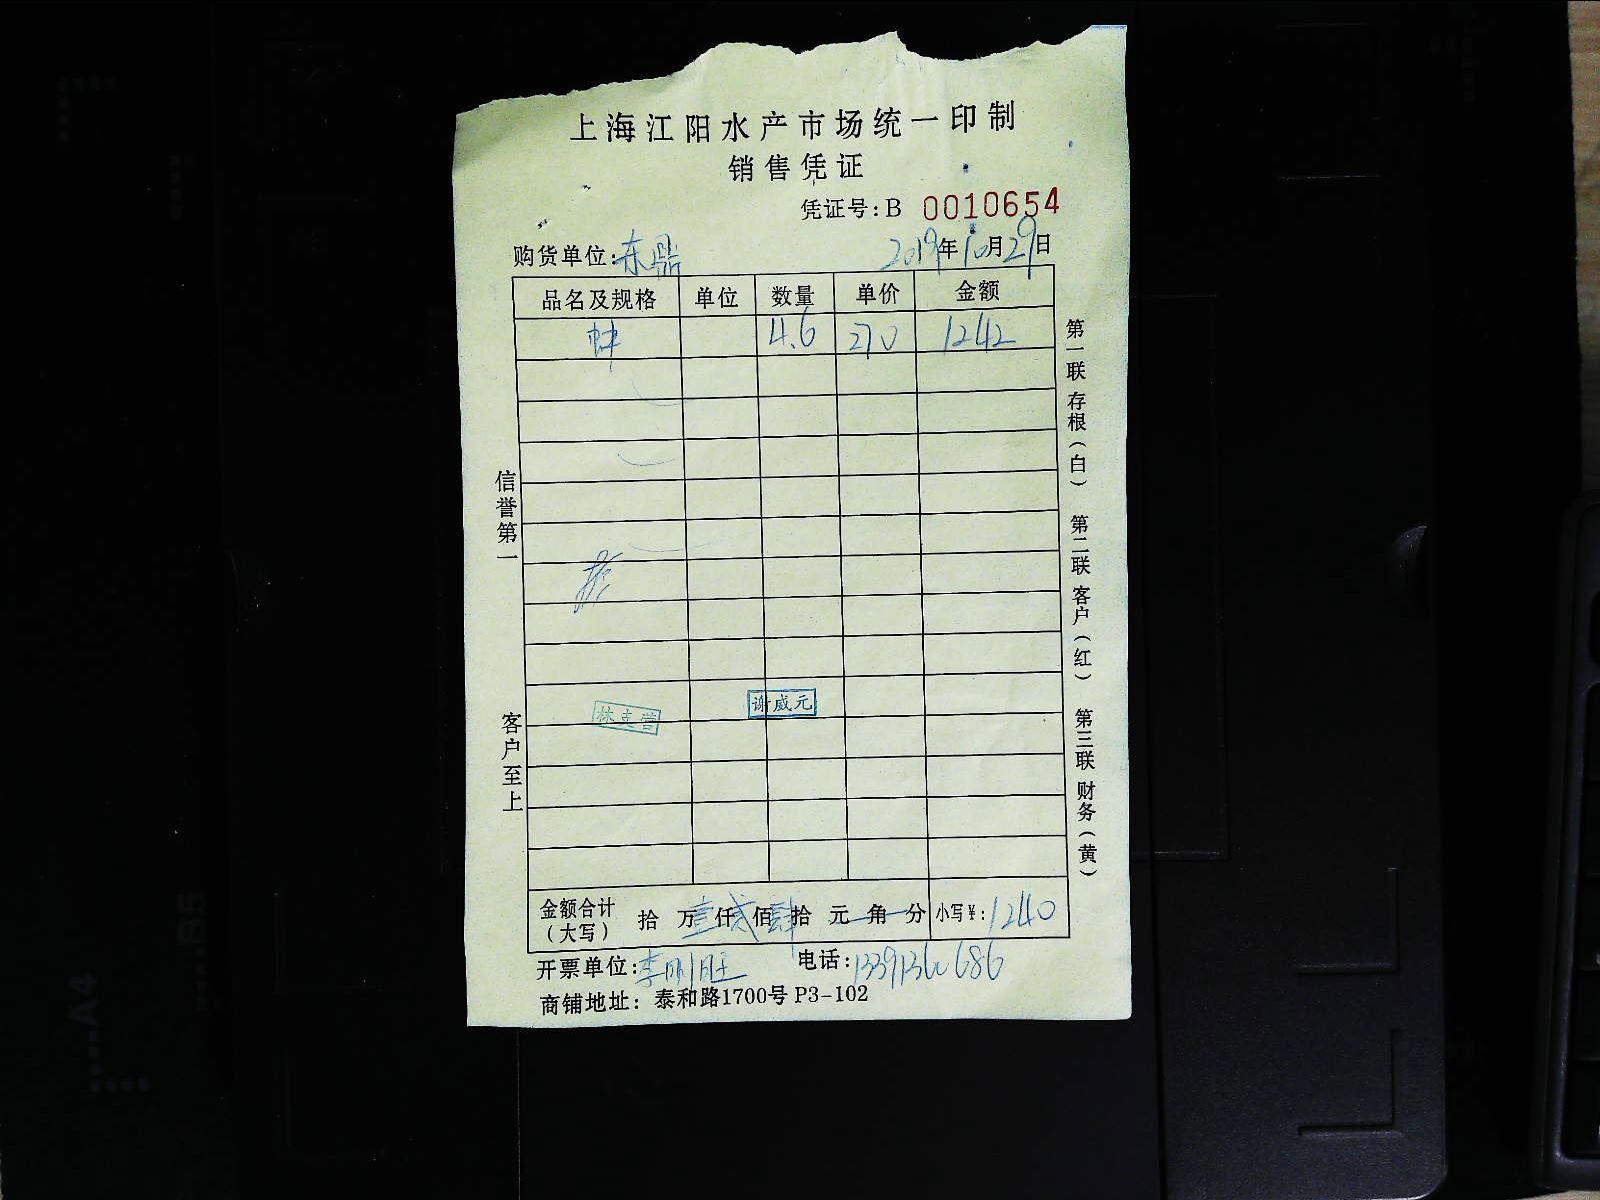 上海江阳水产市场统一印制
销售凭证
凭证号:B 0010654
购货单位:东鼎 2019年10月29日
品名及规格 单位 数量 单价 金额
4.6 270 1242
谢威元
金额合计(大写) 拾 万壹仟贰佰肆拾 元 角 分 小写¥:1240
开票单位:李 旺 电话:13391360686
商铺地址: 泰和路1700号 P3-102
信誉第一
客户至上
第一联 存根(白) 第二联 客户(红) 第三联 财务(黄)